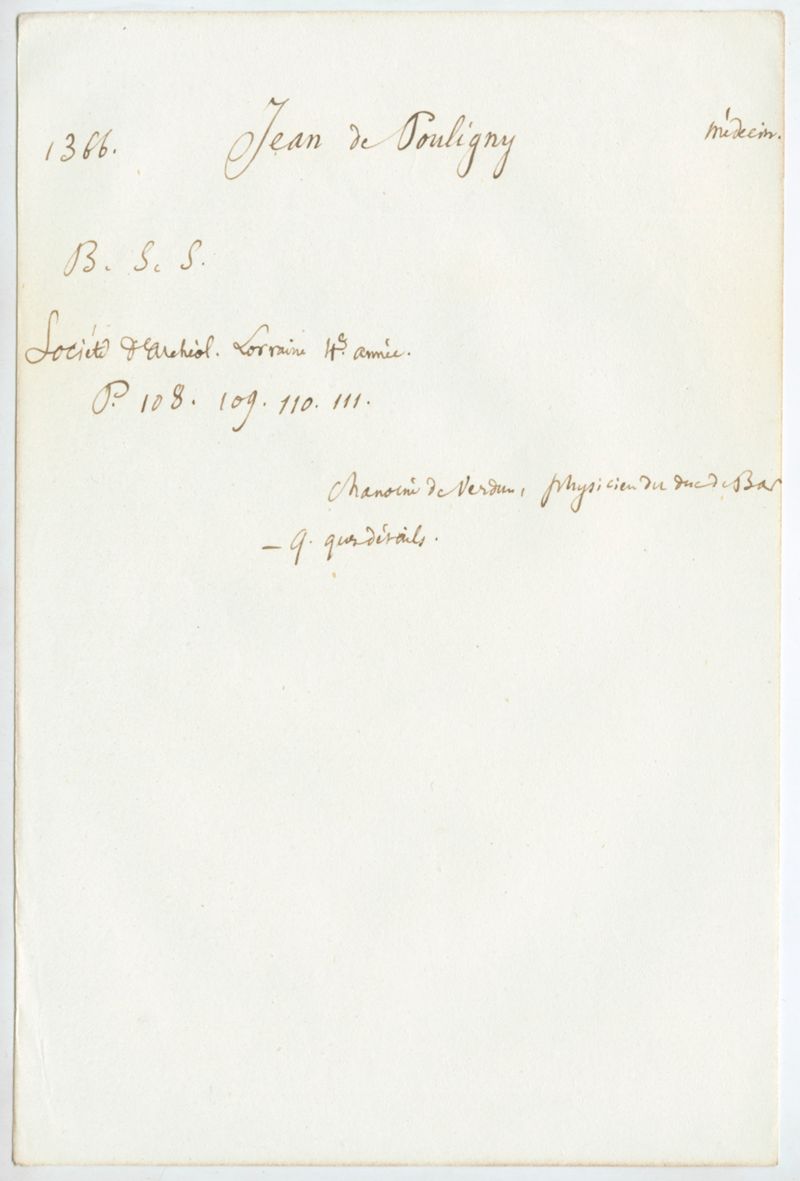 1366. Jean de Pouligny médecin.
B. S. S.
Société d'archéol. Lorraine 4e. année.
P. 108. 109. 110. 111.
chanoine de Verdun, physicien du duc de Bar
— q. ques détails.